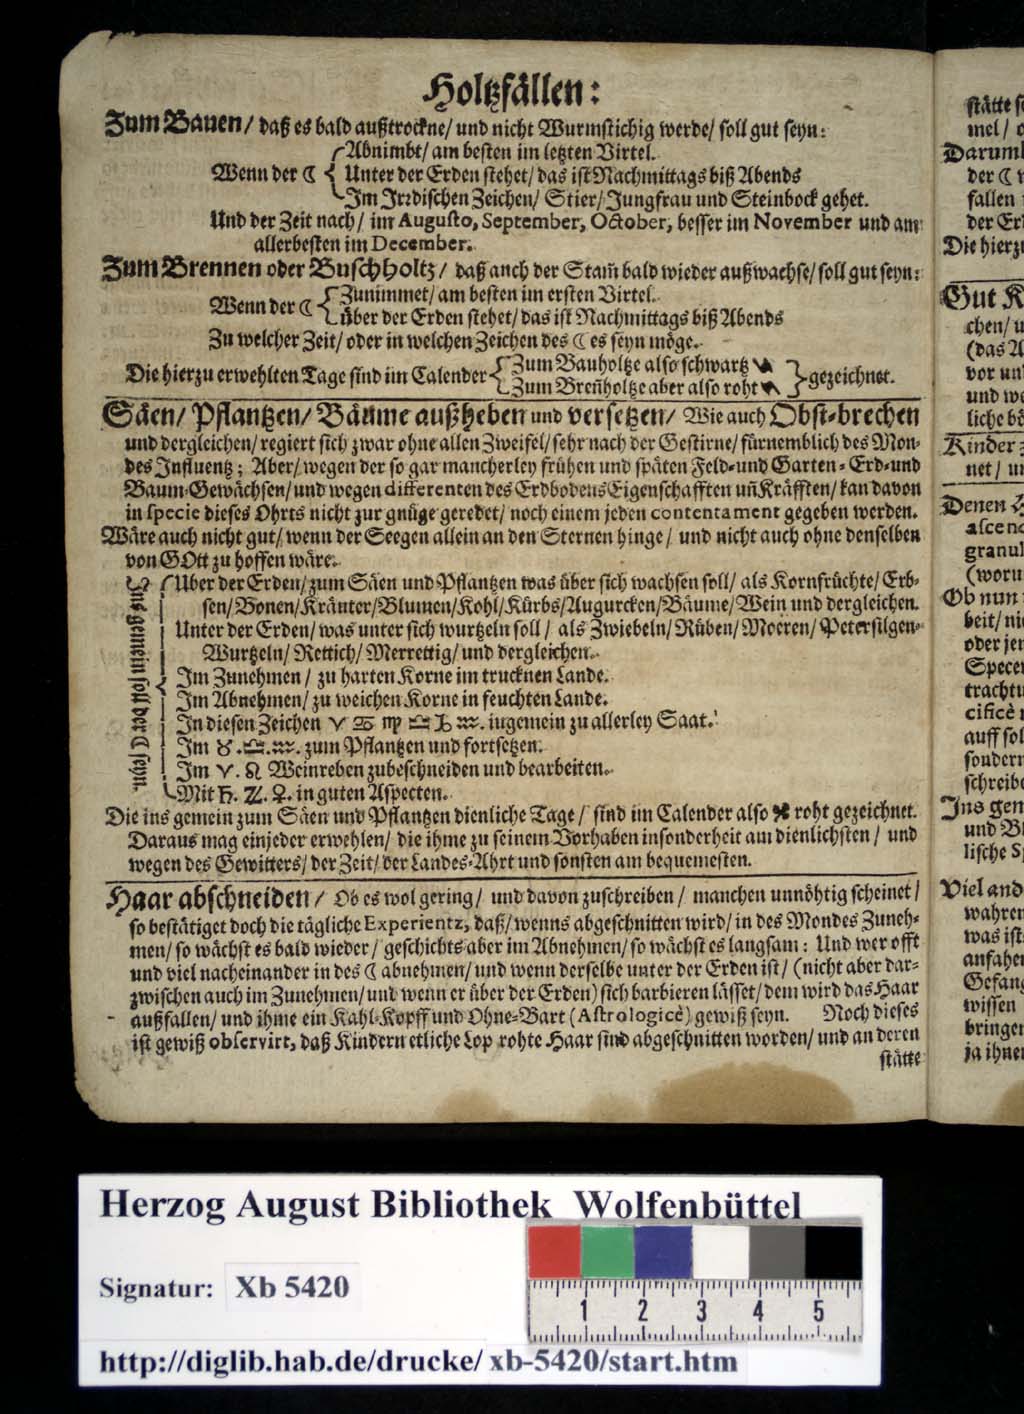 Holtzfällen:
Zum Bauen/ daß es bald außtrockne/ und nicht Wurmstichig werde/ soll gut seyn:
Abnimbt/ am besten im letzten Virtel.
Wenn der ☾ Unter der Erden stehet/ das ist Nachmittags biß Abends
Im Irrdischen Zeichen/ Stier/ Jungfrau und Steinbock gehet.
Und der Zeit nach/ im Augusto, September, October, besser im November und am
allerbesten im December.
Zum Brennen oder Buschholtz/ daß auch der Stam̃ bald wieder außwachse/ soll gut seyn:
Wenn der ☾ Zunimmet/ am besten im ersten Virtel.
über der Erden stehet/ das ist Nachmittags biß Abends
Zu welcher Zeit/ oder in welchen Zeichen des ☾ es seyn möge.
Die hierzu erwehlten Tage sind im Calender Zum Bauholtze also schwartz
Zum Breñholtze aber also roht gezeichnet.
Säen/ Pflantzen/ Bäume außheben und versetzen/ Wie auch Obst-brechen
und dergleichen/ regiert sich zwar ohne allen Zweifel/ sehr nach der Gestirne/ fürnemblich des Mon-
des Influentz; Aber/ wegen der so gar mancherley frühen und späten Feld-und Garten-Erd-und
Baum-Gewächsen/ und wegen differenten des Erdbodens Eigenschafften uñ Kräfften/ kan davon
in specie dieses Ohrts nicht zur gnüge geredet/ noch einem jeden contentament gegeben werden.
Wäre auch nicht gut/ wenn der Seegen allein an den Sternen hinge/ und nicht auch ohne denselben
von GOtt zu hoffen wäre.
Ins gemein soll der ☾ seyn.
Uber der Erden/ zum Säen und Pflantzen was über sich wachsen soll/ als Kornfrüchte/ Erb-
sen/ Bonen/ Kräuter/ Blumen/ Kohl/ Kürbs/ Augurcken/ Bäume/ Wein und dergleichen.
Unter der Erden/ was unter sich wurtzeln soll/ als Zwiebeln/ Rüben/ Moeren/ Petersilgen-
Wurtzeln/ Rettich/ Merrettig/ und dergleichen.
Im Zunehmen/ zu harten Korne im trucknen Lande.
Im Abnehmen/ zu weichen Korne in feuchten Lande.
In diesen Zeichen ♈ ♋ ♍ ♎ ♑ ♒. ingemein zu allerley Saat.
Im ♉.♎.♒. zum Pflantzen und fortsetzen.
Im ♈. ♌ Weinreben zubeschneiden und bearbeiten.
Mit ♄. ♃. ♀. in guten Aspecten.
Die ins gemein zum Säen und Pflantzen dienliche Tage/ sind im Calender also ✤ roht gezeichnet.
Daraus mag einjeder erwehlen/ die ihme zu seinem Vorhaben insonderheit am dienlichsten/ und
wegen des Gewitters/ der Zeit/ der Landes-Ahrt und sonsten am bequemesten.
Haar abschneiden/ Ob es wol gering/ und davon zuschreiben/ manchen unnöhtig scheinet/
so bestätiget doch die tägliche Experientz, daß/ wenns abgeschnitten wird/ in des Mondes Zuneh-
men/ so wächst es bald wieder/ geschichts aber im Abnehmen/ so wächst es langsam: Und wer offt
und viel nacheinander in des ☾ abnehmen/ und wenn derselbe unter der Erden ist/ (nicht aber dar-
zwischen auch im Zunehmen/ und wenn er über der Erden) sich barbieren lässet/ dem wird das Haar
außfallen/ und ihme ein Kahl-Kopff und Ohne-Bart (Astrologicè) gewiß seyn. Noch dieses
ist gewiß observirt, daß Kindern etliche Lop rohte Haar sind abgeschnitten worden/ und an deren
stätte
stätte
mel/
Darumb
der ☾
fallen
der Erd
Die hierz
Gut K
chen/ u
(das A
vor un
und we
liche bö
Kinder
net/ un
Denen
ascend
granul
(woru
Ob nun
beit/ ni
oder jen
Specer
trachtu
cificè
auff sol
sondern
schreibe
Ins gem
und Bl
lische Sp
Viel and
wahren
was ist
anfahen
Gefang
wissen
bringen
ja ihnen
Herzog August Bibliothek Wolfenbüttel
Signatur: Xb 5420
1 2 3 4 5
http://diglib.hab.de/drucke/xb-5420/start.htm